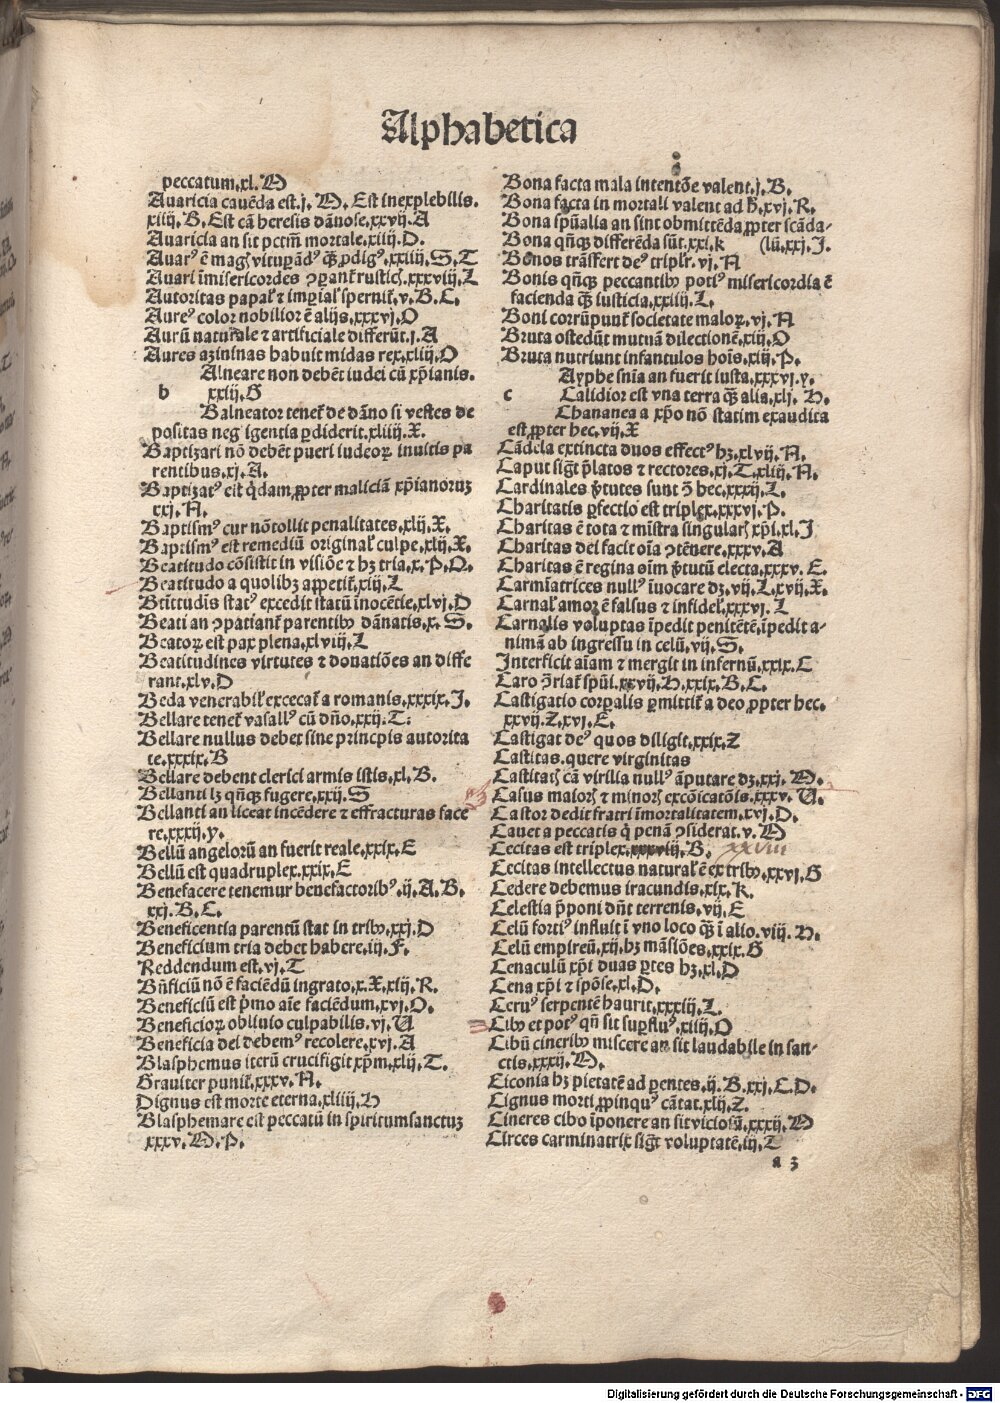 Alphabetica
peccatum.xl.M
Auaricia cauēda est.j.M. Est inexplebilis.
xiiij.B. Est cā heresis dānose.xxvij.A
Auaricia an sit pctm̄ mortale.xiiij.D.
Auarꝰ ē magꝭ vituꝑādꝰ qᷓꝫ ꝓdigꝰ.xxiiij.S.T
Auari īmisericordes ꝯꝑant᷑ rusticꝭ.xxxviij.L
Autoritas papal᷑ ⁊ imꝑial᷑ spernit᷑.v.B.C.
Aureꝰ color nobilior ē alijs.xxxvj.O
Aurū naturale ⁊ artificiale differūt.j.A
Aures azininas habuit midas rex.xliij.O
Alneare non debēt iudei cū xp̄ianis.
b xxiij.G
Balneator tenet᷑ de dāno si vestes de
positas negligentia ꝑdiderit.xliiij.X.
Baptizari nō debēt pueri iudeoꝝ inuitis pa
rentibus.xj.A.
Baptizatꝰ est qͥdam ꝓpter maliciā xp̄ianorum
xxj.N.
Baptismꝰ cur nō tollit penalitates.xlij.X.
Baptismꝰ est remediū original᷑ culpe.xlij.X.
Beatitudo cōsistit in visiōe ⁊ hꝫ tria.x.P.Q.
Beatitudo a quolibꝫ appetit᷑.xiij.L
Btītudīs statꝰ excedit statū inocētie.xlvj.D
Beati an ꝯpatiant᷑ parentibꝰ dānatis.x.S.
Beatoꝝ est pax plena.xlviij.L
Beatitudines virtutes ⁊ donatiōes an diffe
rant.xlv.D
Beda venerabil᷑ excecat᷑ a romanis.xxxix.J.
Bellare tenet᷑ vasallꝰ cū dn̄o.xxij.T:
Bellare nullus debet sine princpis autorita
te.xxxix.B
Bellare debent clerici armis istis.xl.B.
Bellanti lꝫ qn̄qꝫ fugere.xxij.S
Bellanti an liceat incēdere ⁊ effracturas face
re.xxxij.y.
Bellū angelorū an fuerit reale.xxix.E
Bellū est quadruplex.xxix.E
Benefacere tenemur benefactoribꝰ.ij.A.B.
xxj.B.C.
Beneficentia parentū stat in tribꝰ.xxj.D
Beneficium tria debet habere.iij.F.
Reddendum est.vj.T
Bn̄ficiū nō ē faciēdū ingrato.x.X.xlij.R.
Beneficiū est pͥmo aīe faciēdum.xvj.O.
Beneficioꝝ obliuio culpabilis.vj.U
Beneficia dei debemꝰ recolere.xvj.A
Blasphemus iterū crucifigit xp̄m.xlij.T.
Grauiter punit᷑.xxxv.N.
Dignus est morte eterna.xliiij.H
Blasphemare est peccatū in spiritumsanctum
xxxv.M.P.
Bona facta mala intentōe valent.j.B.
Bona facta in mortali valent ad h̄.xvj.R.
Bona spūalia an sint obmittēda ꝓpter scāda-
Bona qn̄qꝫ differēda sūt.xxj.k (lū.xxj.J.
Bonos trāsfert deꝰ triplr̄.vj.N
Bonis qn̄qꝫ peccantibꝰ potiꝰ misericordia ē
facienda qᷓꝫ iusticia.xxiiij.L.
Boni corrūpunt᷑ societate maloꝝ.vj.N
Bruta ostēdūt mutuā dilectionē.xiij.O
Bruta nutriunt infantulos hoīs.xiij.P.
Ayphe sn̄ia an fuerit iusta.xxxvj.y.
c Calidior est vna terra qᷓꝫ alia.xlj.H.
Chananea a xp̄o nō statim exaudita
est ꝓpter hec.vij.X
Cādela extincta duos effectꝰ hꝫ.xlvij.N.
Caput sigͭ p̄latos ⁊ rectores.xj.T.xliij.N.
Cardinales v̓tutes sunt ꝯ hec.xxxij.L.
Charitatis ꝑfectio est triplex.xxxvj.P.
Charitas ē tota ⁊ mīstra singularꝭ xp̄i.xl.J
Charitas dei facit oīa ꝯtēnere.xxxv.A
Charitas ē regina oīm v̓tutū electa.xxxv.E.
Carmīatrices nullꝰ īuocare dꝫ.vij.L.xvij.X.
Carnal᷑ amoꝝ ē falsus ⁊ infidel᷑.xxxvj.L
Carnalis voluptas īpedit penitētē.īpedit a-
nimā ab ingressu in celū.vij.S.
Interficit aīam ⁊ mergit in infernū.xxix.C
Caro ꝯriat᷑ spūi.xxvij.H.xxix.B.C.
Castigatio corꝑalis ꝑmittit᷑ a deo ꝓpter hec.
xxvij.Z.xvj.E.
Castigat deꝰ quos diligit.xxix.Z
Castitas.quere virginitas
Castitatꝭ cā virilia nullꝰ āputare dꝫ.xxj.M.
Casus maiorꝭ ⁊ minorꝭ excōicatōis.xxxv.U.
Castor dedit fratri īmortalitatem.xvj.D.
Cauet a peccatis qͥ penā ꝯsiderat.v.M
Cecitas est triplex.xxxviij.B. xxviii
Cecitas intellectus natural᷑ ē ex tribꝰ.xxvj.G
Cedere debemus iracundis.xix.K.
Celestia p̄poni dn̄t terrenis.vij.E
Celū fortiꝰ influit ī vno loco qᷓꝫ ī alio.viij.H.
Celū empireū.xij.hꝫ māsiōes.xxix.G
Cenaculū xp̄i duas ꝑtes hꝫ.xl.D
Cena xp̄i ⁊ spōse.xl.D.
Ceruꝰ serpentē haurit.xxxiij.L.
Cibꝰ et potꝰ qn̄ sit suꝑfluꝰ.xiiij.O
Cibū cineribꝰ miscere an sit laudabile in san-
ctis.xxxij.M.
Ciconia hꝫ pietatē ad ꝑentes.ij.B.xxj.C.D.
Cignus morti ꝓpinquꝰ cātat.xlij.Z.
Cineres cibo īponere an sit viciosū.xxxij.M
Circes carminatrix sigͭ voluptatē.iij.T
a 3
Digitalisierung gefördert durch die Deutsche Forschungsgemeinschaft - DFG